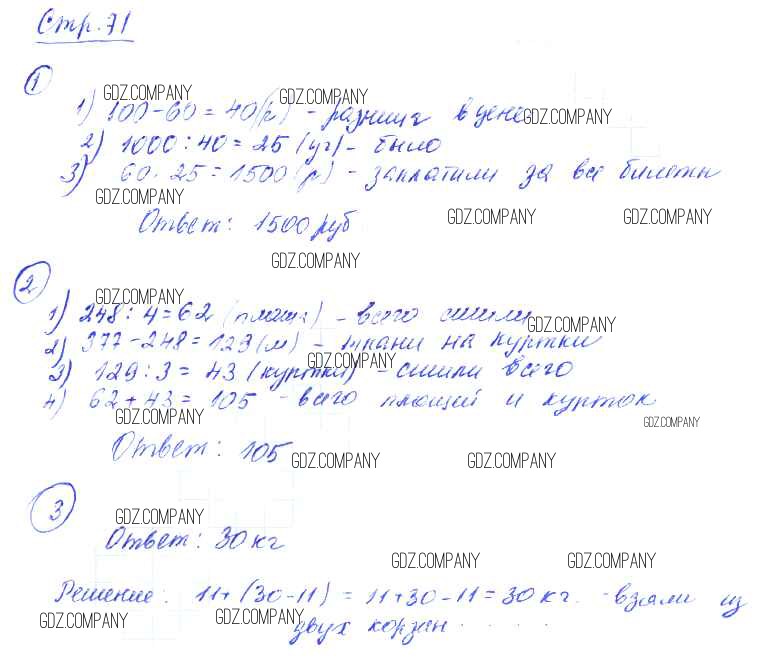 Стр. 71
1
GDZ.COMPANY GDZ.COMPANY
1) 100 - 60 = 40 (р) - разница в цене GDZ.COMPANY
2) 1000 : 40 = 25 (уч) - было
3) 60 · 25 = 1500 (р) - заплатили за все билеты
GDZ.COMPANY
Ответ: 1500 руб GDZ.COMPANY GDZ.COMPANY
GDZ.COMPANY
2
GDZ.COMPANY
1) 248 : 4 = 62 (плаща) - всего сшили GDZ.COMPANY
2) 377 - 248 = 129 (м) - ткани на куртки
GDZ.COMPANY
3) 129 : 3 = 43 (куртки) - сшили всего
4) 62 + 43 = 105 - всего плащей и курток
GDZ.COMPANY GDZ.COMPANY
Ответ: 105 GDZ.COMPANY GDZ.COMPANY
3
GDZ.COMPANY
Ответ: 30 кг
GDZ.COMPANY GDZ.COMPANY
Решение: 11 + (30 - 11) = 11 + 30 - 11 = 30 кг. - взяли из
GDZ.COMPANY GDZ.COMPANY
двух корзин